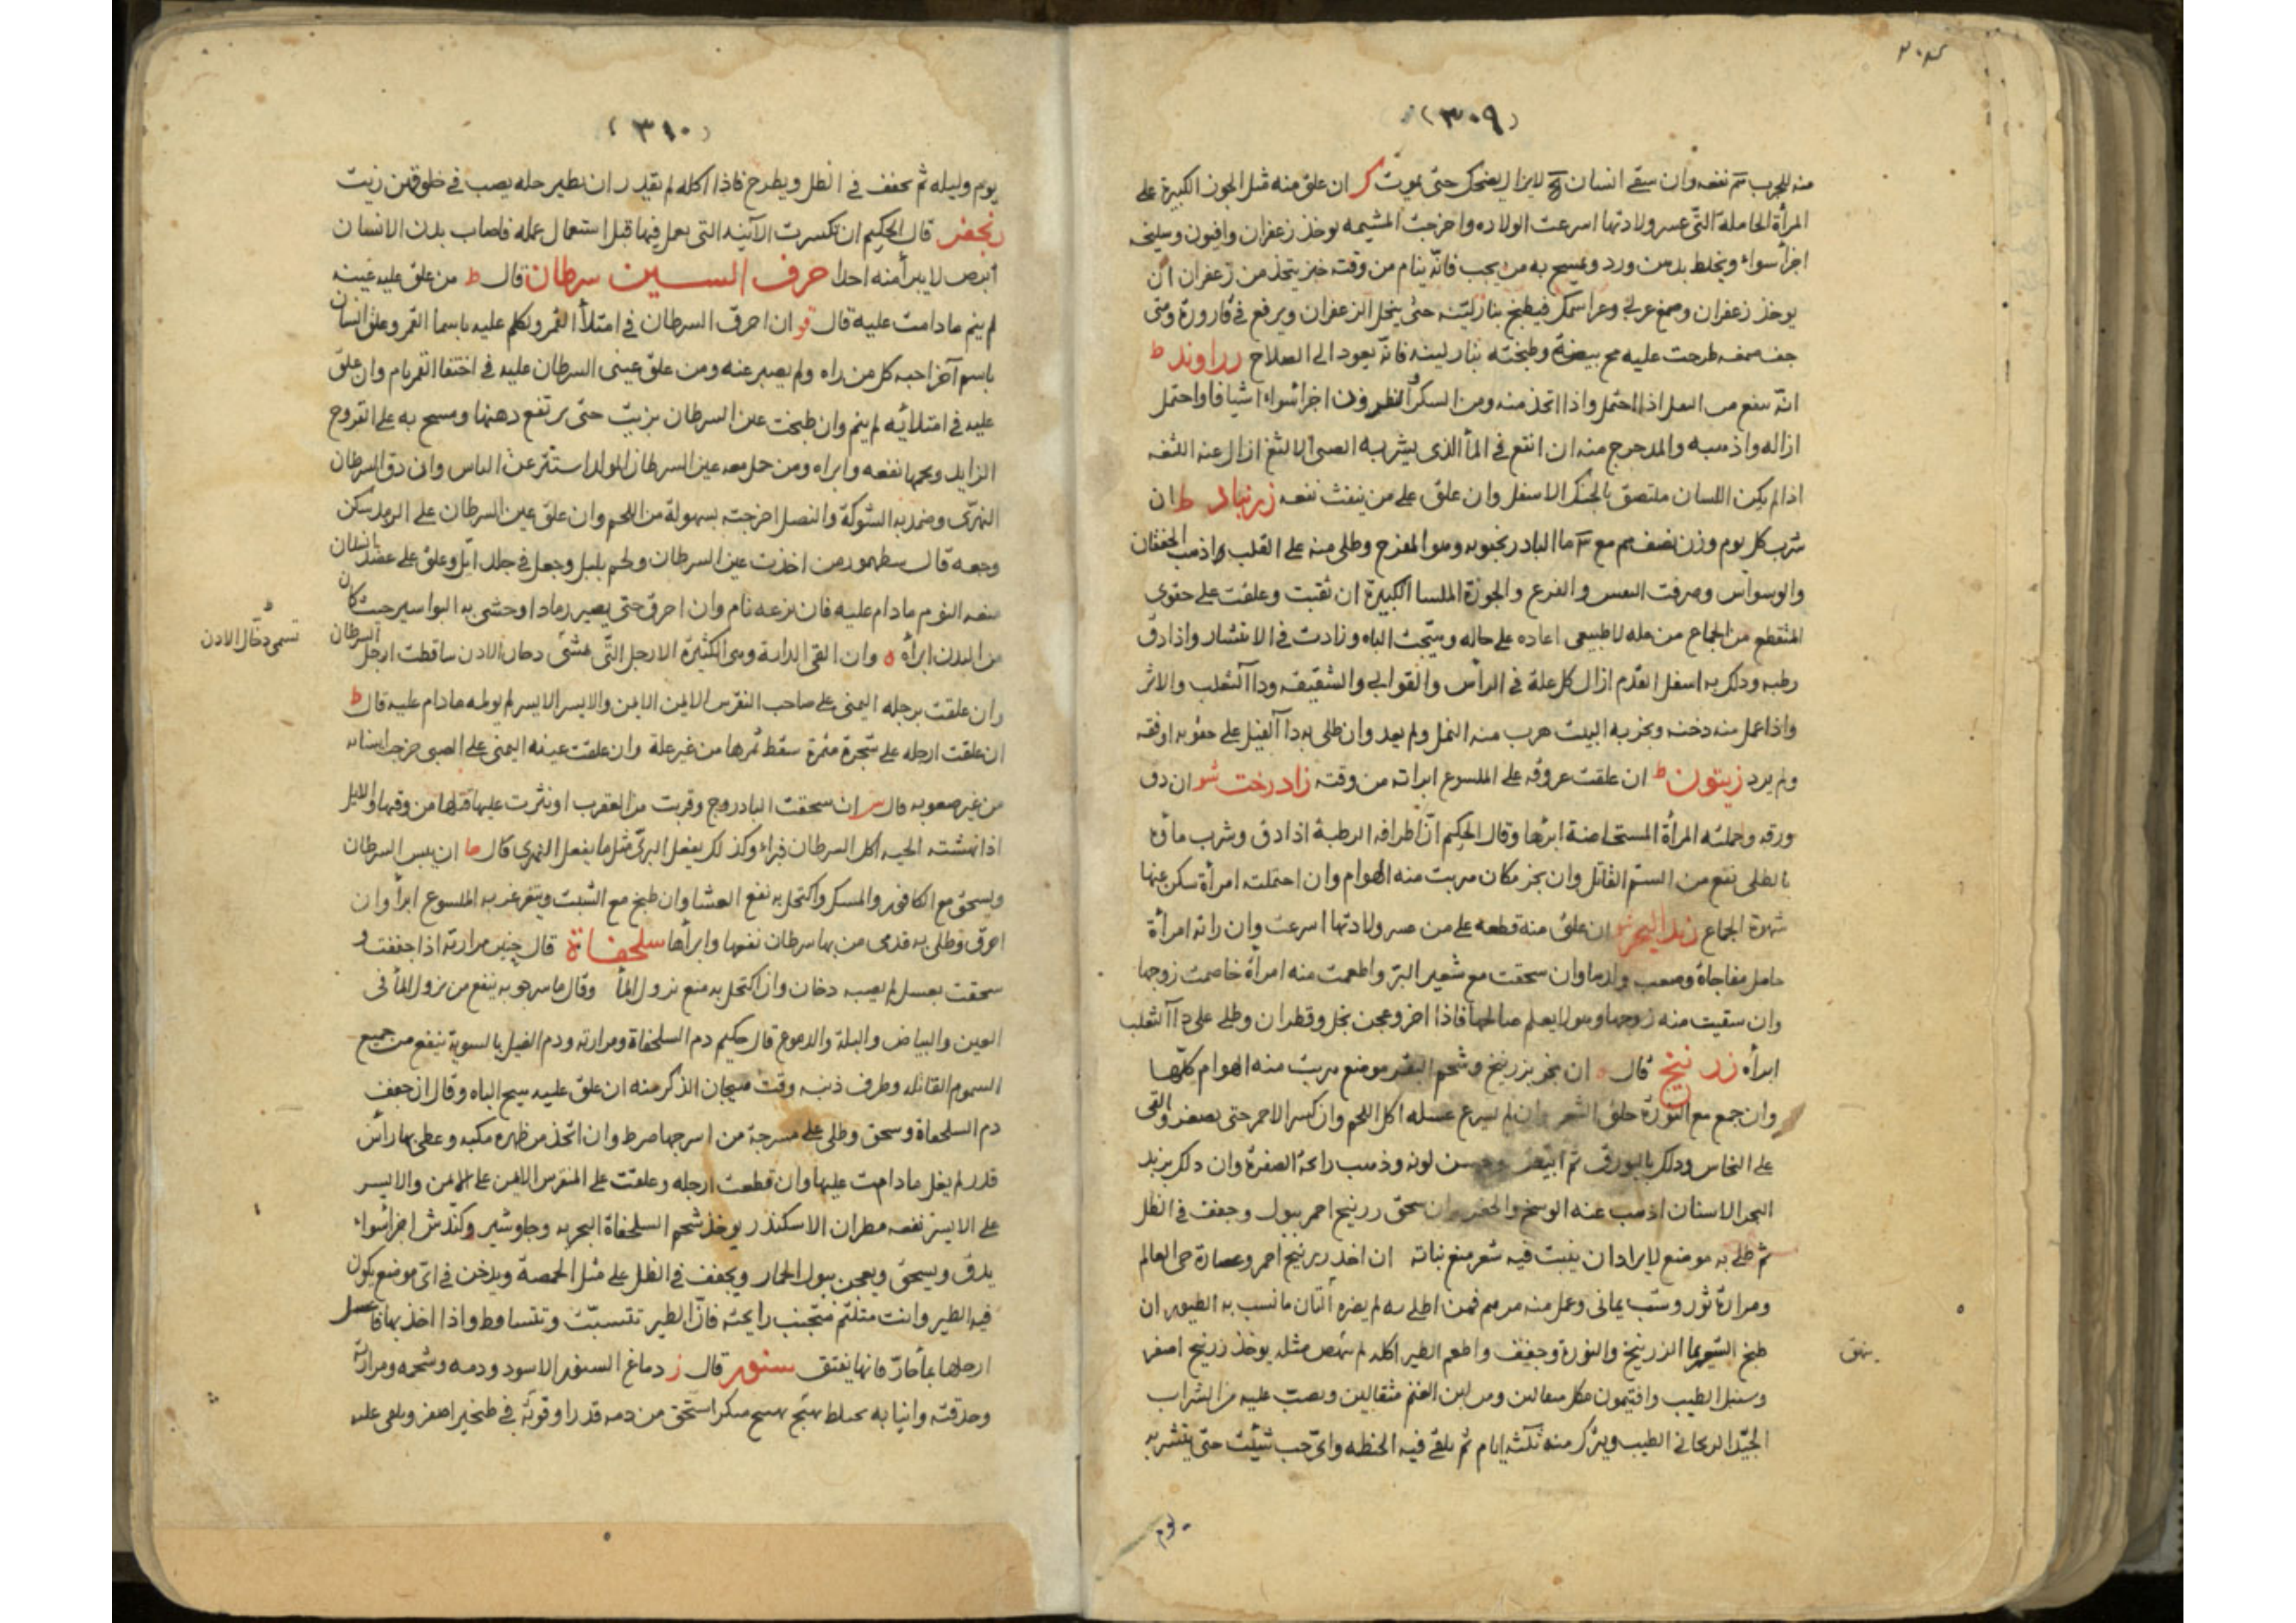 (٣٠٩)
منه للجرب نفعه وان سقے انسان لايزال يضحك حتى يموت ان علق منه مثل الجوز الكبيرة على
المرأة الحاملة التى عسر ولادتها اسرعت الولاده واخرجت المشيمه يوخذ زعفران وافيون وسليخه
اجزأ سواء ويخلط بدهن ورد ويمسح به من يحب فانّه ينام من وقته خبز يتخذ من زعفران ان
يوخذ زعفران وصمغ عربى فيطبخ بنار ليّنه حتى ينحل الزعفران ويرفع فى قارورة ومتى
جف صمغه طرحت عليه مح بيضة وطبخته بنار لينه فانه يعود الى الصلاح رراوند ط
انّه ينفع من اذا احتمل واذا اتخذ منه ومن السكر والنطرون اجزأ سواء اشيافا واحتمل
ازاله واذهبه والمدحرج منه ان انقع فى المأ الذى يشربه الصبى الالثغ ازال عنه اللثغه
اذا لم يكن اللسان ملتصق بالحنك الاسفل وان علق على من ينفث نفعه زرنباد ط ان
شرب كل يوم وزن نصف مع مآ البادرنجبويه وهو المفرح وطلى منه على القلب اذهب الخفقان
والوسواس وصرفت والفزع والجوزة الملسا الكبيرة ان ثقبت وعلقت على حقوى
المنقطع من الجماع من عله لا طبيعى اعاده على حاله وهيّجت الباه وزادت فى الانتشار واذا دق
رطبه ودلك به اسفل القدم ازال كل علة فى الرأس والقوابى والشقيقه ودا آلثعلب والاثر
واذا عمل منه دخنه وبخر به البيت هرب منه النمل ولم يعد وان طلى به دا آلفيل على حقويه اوقفه
ولم يزد زيتون ط ان علقت عروقه على الملسوع ابراته من وقته زاد رخت ان دق
ورقه وحملته المرأة المستحاضة ابرأها وقال الحكيم انّ اطرافه الرطبة اذا دق وشرب ماؤه
بالطلى نفع من السمّ القاتل وان بخر مكان هربت منه الهوام وان احتملت امرأة سكن عنها
شهوة الجماع زبد البحر ان علق منه قطعه على من عسر ولادتها اسرعت وان راته امرأة
حامل مفاجاة وصعب وان سحقت مع شعير البرّ واطعمت منه امرأة خاصمت زوجها
وان سقيت منه زوجها ولم يعلم صالحها فاذا احرق وعجن بخل وقطران وطلى على دآ آلثعلب
ابرأه زرنيخ قال ان بخر بزرنيخ وشحم البقر موضع هربت منه الهوام كلّها
وان جمع مع النورة حلق الشعر وان لم يسرع غسله اكل اللحم وان كسر الاحمر حتى يصفر والقى
على النحاس ودلك بالبورق ثم ابيض وحسن لونه وذهب رائحة الصفرة وان دلك بزبد
البحر الاسنان اذهب عنه الوسخ والحفر وان سحق زرنيخ احمر ببول وجفف فى الظل
ثم طلى به موضع لايراد ان ينبت فيه شعر منع نباته ان اخذ زرنيخ احمر وعصارة حى العالم
ومرارة ثور وشب يمانى وعمل منه مرهم فمن اطلى به لم يضره
طبخ الزرنيخ والنورة وجفف واطعم الطير اكله لم ينهض مثله يوخذ زرنيخ اصفر
ينهق
وسنبل الطيب وافتيمون مثقالين ومن لبن الغنم مثقالين ويصب عليه من الشراب
الجيّد الريحانى الطيب ويترك منه ثلثه ايام ثم يلقى فيه الحنطه واى حب شئت حتى يتشربه
يوم
(٣١٠)
يوم وليله ثم يجفف فى الظل ويطرح فاذا اكله لم يقدر ان يطير حله يصب فى حلوقهن زيت
زنجفر قال الحكيم ان تكسرت الآنيه التى يعمل فيها قبل استعمال عمله فاصاب بدن الانسان
ابرص لا يبرأ منه احدا حرف السين سرطان قال ط من علق عليه عينه
لم ينم ما دامت عليه قال ان احرق السرطان فى امتلأ القمر وتكلم عليه باسمأ القمر وعلق انسان
باسم آخر احبه كل من راه ولم يصبر عنه ومن علق عينى السرطان عليه فى اختفا القمر نام وان علق
عليه فى امتلايه لم ينم وان طبخت عين السرطان بزيت حتى يرتفع دهنها ومسح به على القروح
الزايد ولحمها نفعه وابراه ومن حمل معه عين السرطان المولد استتر عن الناس وان دق السرطان
النهرى وضمد به الشوكة والنصل اخرجته بسهولة من اللحم وان علق عين السرطان على الرمد سكن
وجعه قال من اخذت عين السرطان ولحم بلبل وجعل فى جلد ايّل وعلق على عضد انسان
منعه النوم مادام عليه فان نزعه نام وان احرق حتى يصير رمادا وحشى به البواسير حيث كان
من البدن ابرأه ه وان القى الدابة وهى الكثيرة الارجل التى تمشى دخان الاذن ساقطت ارجل السرطان
تسمى دخّال الاذن
وان علقت برجله اليمنى على صاحب النقرس الايمن الايمن والايسر الايسر لم يولمه مادام عليه قال ط
ان علقت ارجله على شجرة مثمرة سقط ثمرها من غير علة وان علقت عينه اليمنى على الصبى خرجت اسنانه
من غير صعوبه قال ان سحقت البادروج وقربت من العقرب او نثرت عليها قتلها من وقتها والايل
اذا نهشته الحيه اكل السرطان فبراء وكذلك يفعل البرّى مثل ما يفعل النهرى قال ان يبس السرطان
وسحق مع الكافور والمسك واكتحل به نفع العشا وان طبخ مع الشبت ويتغرغر به الملسوع ابرأ وان
احرق وطلى به قدمى من بها سرطان نفعها وابرأها سلحفاة قال مرارته اذا جففت و
سحقت بعسل لم يصبه دخان وان اكتحل به منع نزول المأ وقال ماسرجويه ينفع من نزول المأ فى
العين والبياض والبلة والدموع قال حكيم دم السلحفاة ومرارته ودم الفيل بالسوية ينفع من جميع
السموم القاتله وطرف ذنبه وقت هيجان الذكر منه ان علق عليه هيج الباه وقال ان جفف
دم السلحفاة وسحق وطلى على مسرجة من اسرجها ضرط وان اتخذ من ظهره مكبه وغطى بها رأس
قدر لم يغل مادامت عليها وان قطعت ارجله وعلقت على المنقرس الايمن على الايمن والايسر
على الايسر نفعه مطران الاسكندر يوخذ شحم السلحفاة البحريه وجاوشير وكندش اجزأ سواء
يدق ويسحق ويعجن ببول الحمار ويجفف فى الظل على مثل الحمصة ويدخن فى اى موضع يكون
فيه الطير وانت متلثم متجنب رايحته فانّ الطير وتتساقط واذا اخذ بها فاغسل
ارجلها بمأ حارّ فانها تفتق سنور قال ز دماغ السنور الاسود ودمه وشحمه ومرارته
وحدقته وانيابه يخلط من دمه قدر اوقوّيه فى طنجير اصفر ويلقى عليه